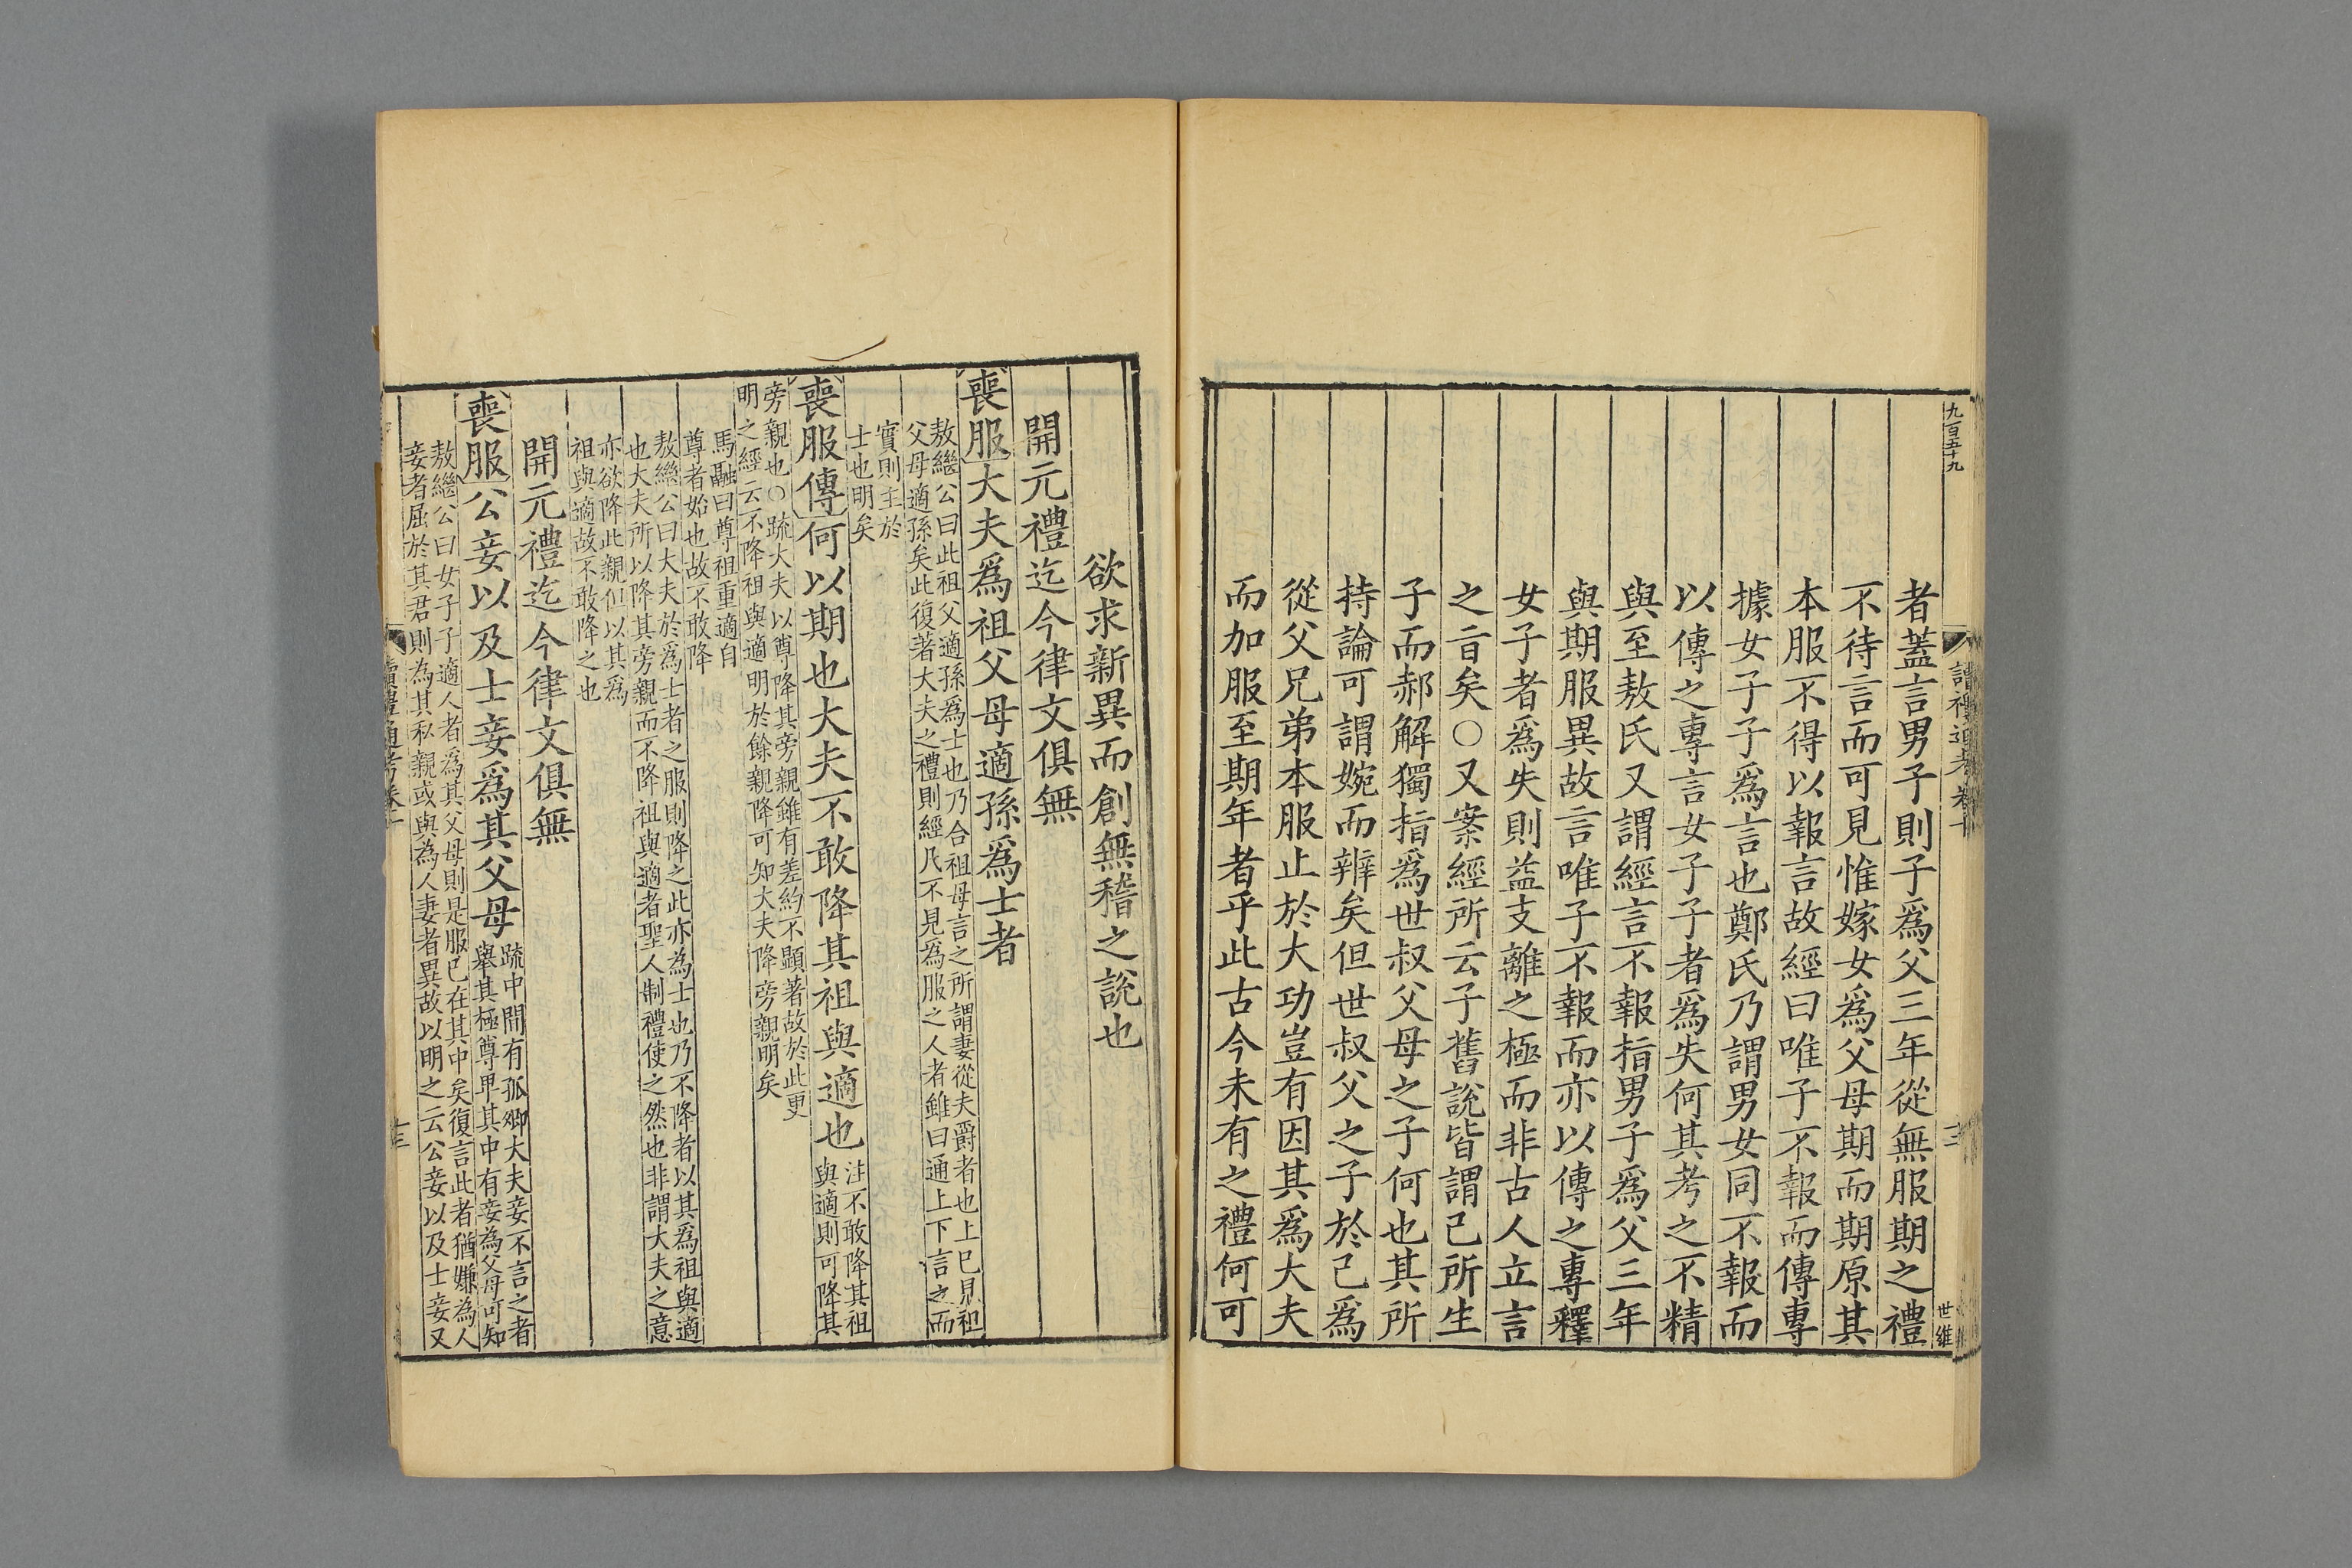 九百五十九
讀禮通考卷十
十二
世維
者蓋言男子則子爲父三年從無服期之禮
不待言而可見惟嫁女爲父母期而期原其
本服不得以報言故經曰唯子不報而傳專
據女子子爲言也鄭氏乃謂男女同不報而
以傳之專言女子子者爲失何其考之不精
與至敖氏又謂經言不報指男子爲父三年
與期服異故言唯子不報而亦以傳之專釋
女子者爲失則益支離之極而非古人立言
之旨矣○又案經所云子舊說皆謂己所生
子而郝解獨指爲世叔父母之子何也其所
持論可謂婉而辨矣但世叔父之子於己爲
從父兄弟本服止於大功豈有因其爲大夫
而加服至期年者乎此古今未有之禮何可
欲求新異而創無稽之說也
開元禮迄今律文俱無
喪服大夫爲祖父母適孫爲士者
敖繼公曰此祖父適孫爲士也乃合祖母言之所謂妻從夫爵者也上已見祖
父母適孫矣此復著大夫之禮則經凡不見爲服之人者雖曰通上下言之而
實則主於
士也明矣
喪服傳何以期也大夫不敢降其祖與適也
注不敢降其祖
與適則可降其
旁親也○疏大夫以尊降其旁親雖有差約不顯著故於此更
明之經云不降祖與適明於餘親降可知大夫降旁親明矣
馬融曰尊祖重適自
尊者始也故不敢降
敖繼公曰大夫於爲士者之服則降之此亦為士也乃不降者以其爲祖與適
也大夫所以降其旁親而不降祖與適者聖人制禮使之然也非謂大夫之意
亦欲降此親但以其爲
祖與適故不敢降之也
開元禮迄今律文俱無
喪服公妾以及士妾爲其父母
疏中間有孤卿大夫妾不言之者
舉其極尊卑其中有妾為父母可知
敖繼公曰女子子適人者爲其父母則是服已在其中矣復言此者猶嫌為人
妾者屈於其君則為其私親或與為人妻者異故以明之云公妾以及士妾又
讀禮通考卷十
十三